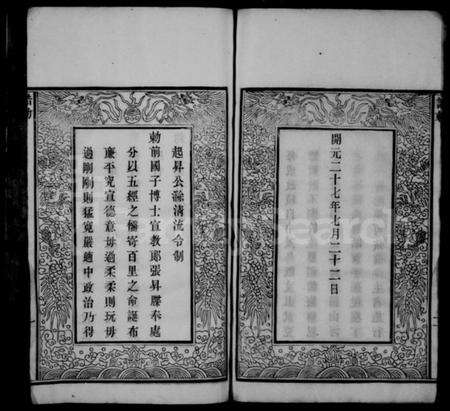 開元二十七年七月二十二日
起昇公除清流令制
勅前國子博士宣教郎張昇膠奉處
分以五經之儒寄百里之命誕布
廉平究宣德意毋過柔柔則玩毋
過剛剛則猛寬嚴適中政治乃得